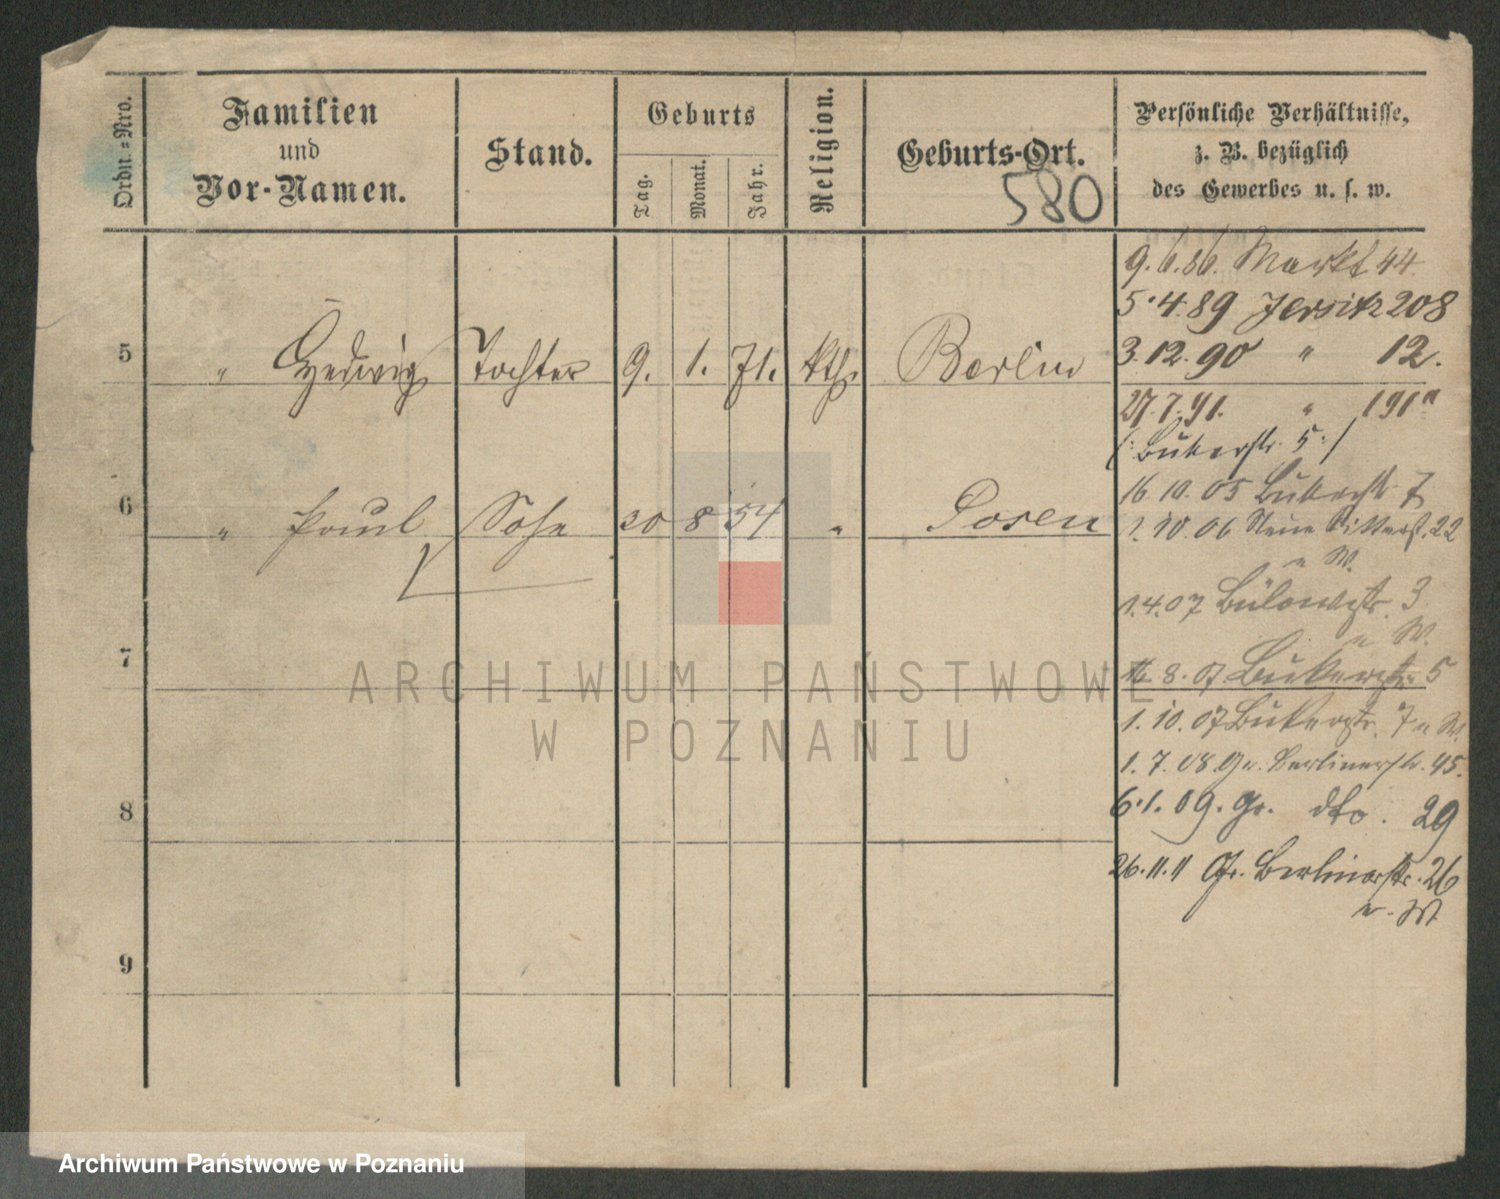 Ordn.-Nro.
Familien
und
Vor-Namen.
Stand.
Geburts
Tag.
Monat.
Jahr.
Religion.
Geburts-Ort.
580
Persönliche Verhältnisse,
z. B. bezüglich
des Gewerbes u. s. w.
5 " Hedwig Tochter 9. 1. 71. kth. Berlin
6 " Paul Sohn 20 8 54 " Posen
7
8
9
9.6.86. Markt 44
5.4.89 Jersitz 208
3.12.90 " 12.
27.7.91. " 191a
(: Bukerstr. 5 :)
16 10. 05 Bukerstr 7
1. 10 06 Neue Ritterst. 22
u W.
1.4.07 Bülowstr. 3
u W.
16. 8. 07 Bukerstr 5
1. 10. 07 Bukerstr. 7 u W.
1. 7. 08 Gr. Berlinerstr. 45.
6.1.09. Gr. dto. 29
26.11.11 Gr. Berlinerstr. 26
u. W
ARCHIWUM PAŃSTWOWE
W POZNANIU
Archiwum Państwowe w Poznaniu